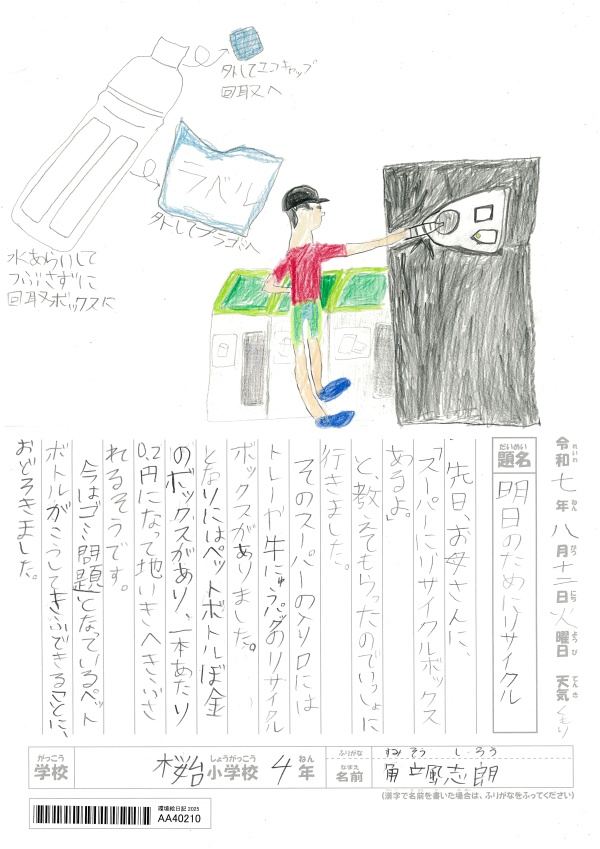 外してエコキャップ
回収へ
ラベル
外してプラゴミへ
水あらいして
つぶさずに
回収ボックスに
令和七年八月十二日火曜日 天気くもり
れいわ ねん がつ にち ようび てんき
だいめい
題名 明日のためにリサイクル
先日、お母さんに、
「スーパーにリサイクルボックス
あるよ。」
と、教えてもらったのでいっしょに
行きました。
そのスーパーの入り口には
トレーや牛にゅうパックのリサイクル
ボックスがありました。
となりにはペットボトルぼ金
のボックスがあり、一本あたり
0.2円になって地いきへきふさ
れるそうです。
今はゴミ問題となっているペット
ボトルがこうしてきふできることに、
おどろきました。
がっこう しょうがっこう ねん
学校 桜台小学校 4年
ふりがな すみ そう しろう
なまえ
名前 角 颯志朗
(漢字で名前を書いた場合は、ふりがなをふってください)
環境絵日記 2025
AA40210